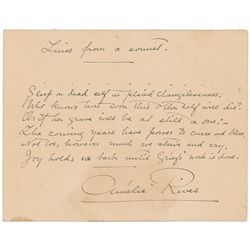 Lines from a sonnet.
Grieve on dead self in placid changelessness:
Who knows how soon this other self will die?
Or if her grave will be as still a one? —
The coming years have power to curse and bless,
Not we, however much we strive and cry.
Joy holds us back until Grief's work is done.
Amélie Rives